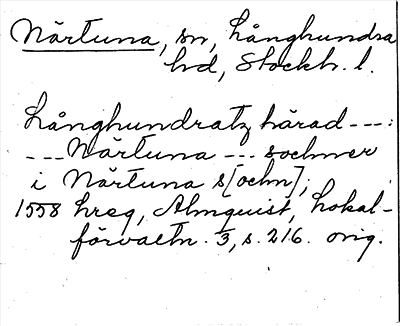 Närtuna, sn, Långhundra
hd, Stockh. l.
Långhundratz härad ---:
--- Närtuna --- sochner
i Närtuna s[ochn];
1558 hreg, Almquist, Lokal-
förvaltn. 3, s. 216. orig.